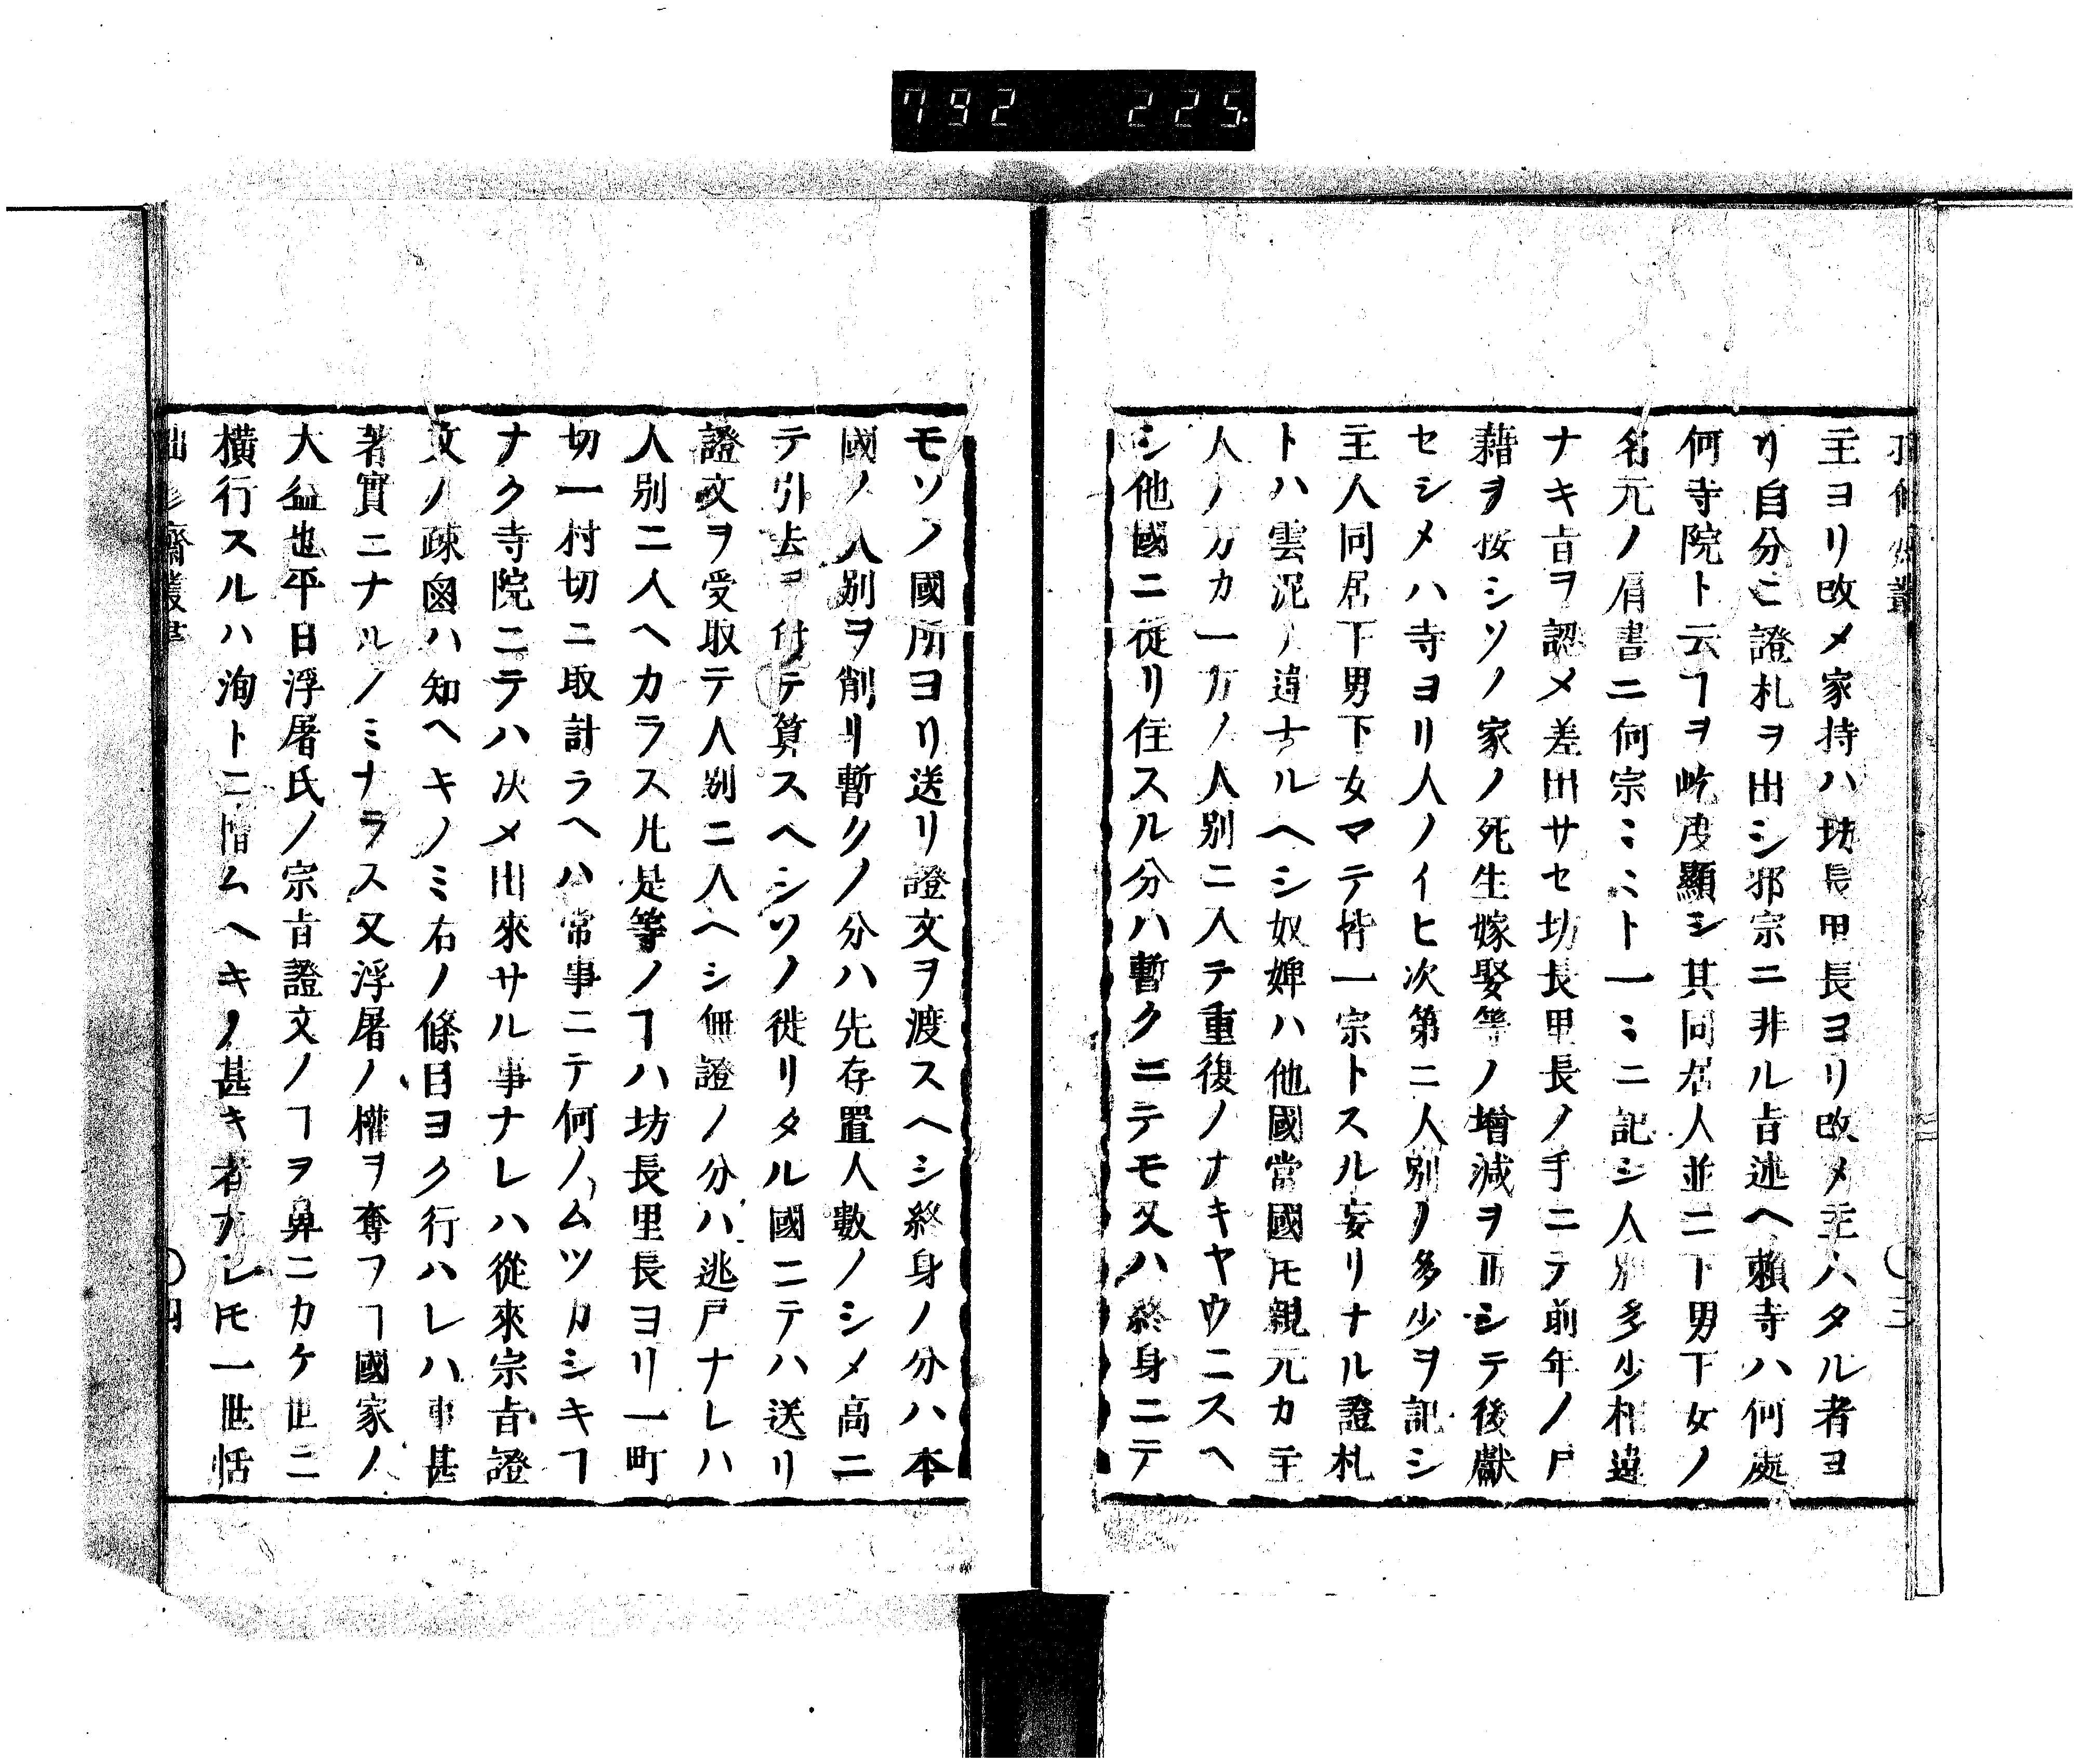 792 225
主ヨリ改メ家持ハ坊長甲長ヨリ改メ主人タル者ヨ
リ自分ニ證札ヲ出シ邪宗ニ非ル旨述ヘ賴寺ハ何處
何寺院ト云ヿヲ屹度顯シ其同居人並ニ下男下女ノ
名元ノ肩書ニ何宗ミミト一ミニ記シ人別多少相違
ナキ旨ヲ認メ差出サセ坊長里長ノ手ニテ前年ノ戸
藉ヲ按シソノ家ノ死生嫁娶等ノ增減ヲ正シテ後獻
セシメハ寺ヨリ人ノイヒ次第ニ人別ノ多少ヲ記シ
主人同居下男下女マテ皆一宗トスル妄リナル證札
トハ雲泥ノ違ナルヘシ奴婢ハ他國當國𪜈親元カ主
人ノ方カ一方ノ人別ニ入テ重復ノナキヤウニスヘ
シ他國ニ從リ住スル分ハ暫クニテモ又ハ終身ニテ
モソノ國所ヨリ送リ證文ヲ渡スヘシ終身ノ分ハ本
國ノ人別ヲ削リ暫クノ分ハ先存置人數ノシメ高ニ
テ引去ヲ付テ算スヘシソノ徙リタル國ニテハ送リ
證文ヲ受取テ人別ニ入ヘシ無證ノ分ハ逃戸ナレハ
人別ニ入ヘカラス凡是等ノヿハ坊長里長ヨリ一町
切一村切ニ取計ラヘハ常事ニテ何ノムツカシキヿ
ナク寺院ニテハ决メ出來サル事ナレハ從來宗旨證
文ノ疎鹵ハ知ヘキノミ右ノ條目ヨク行ハレハ事甚
著實ニナルノミナラス又浮屠ノ權ヲ奪フヿ國家ノ
大益也平日浮屠氏ノ宗旨證文ノヿヲ鼻ニカケ世ニ
橫行スルハ洵トニ惜ムヘキノ甚キ者ナレ𪜈一世恬